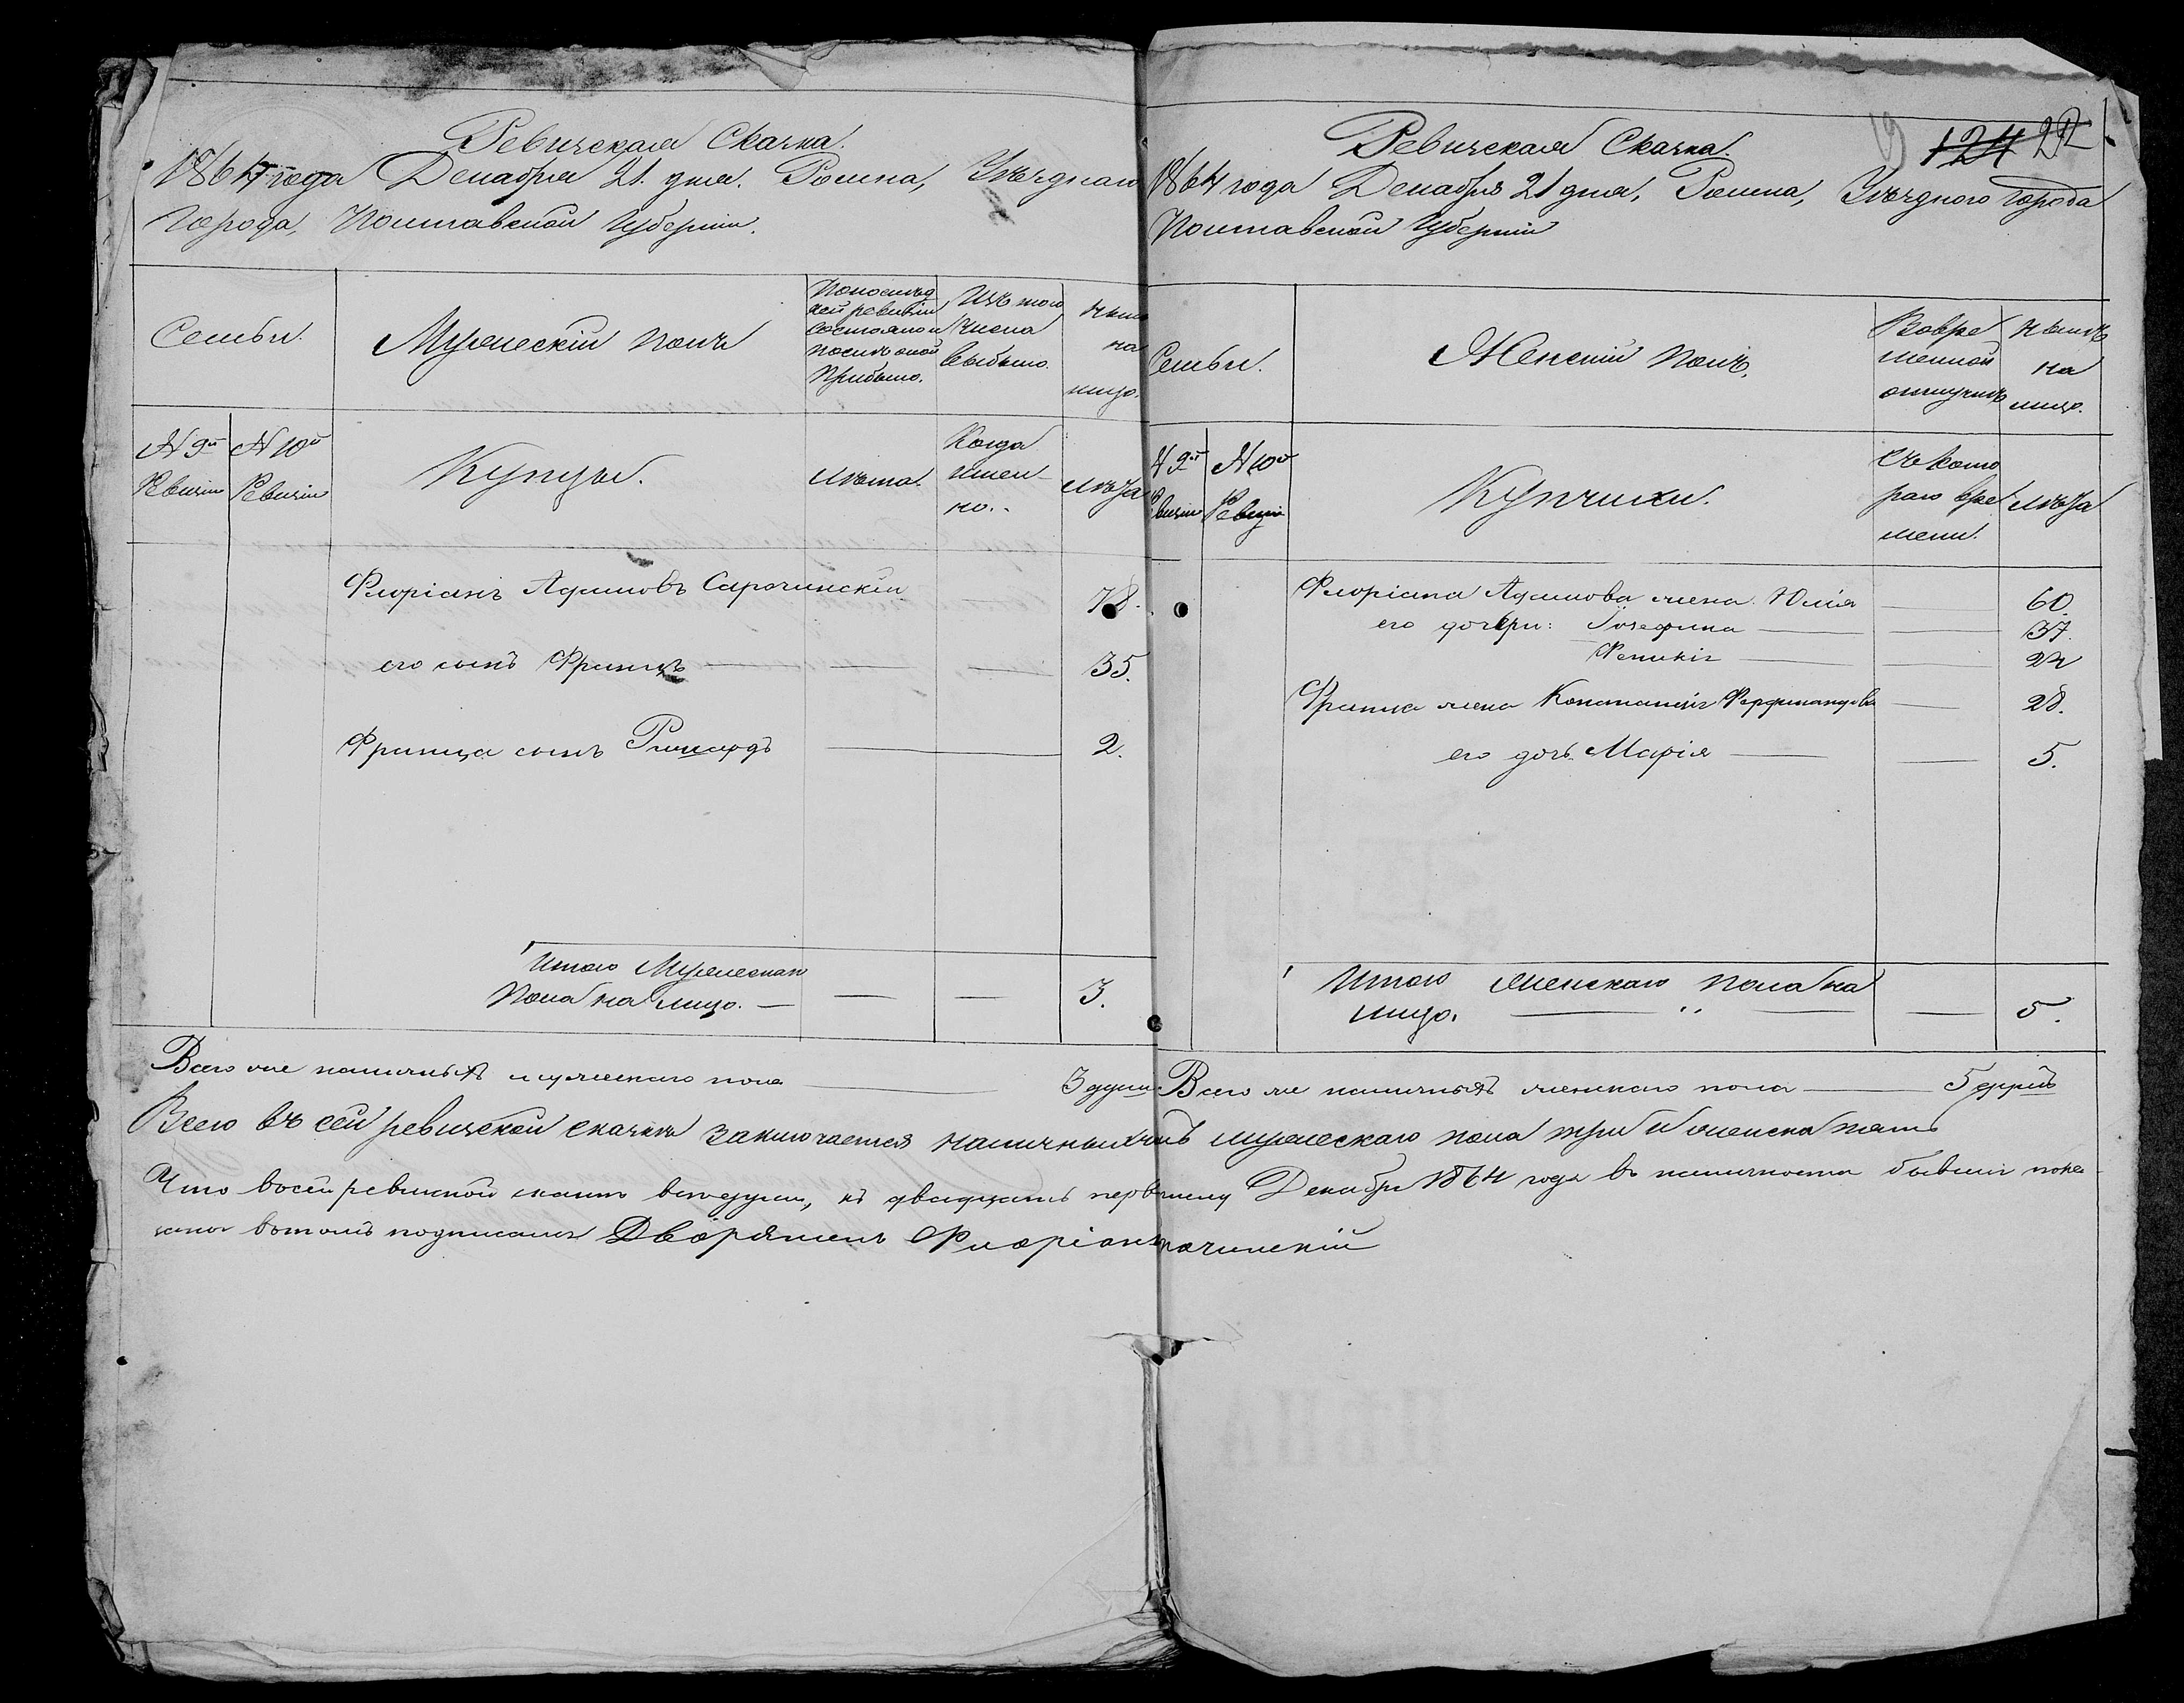 Ревизская Сказка.
1864 года Декабря 21. дня. Ромна, Уѣзднаго
Города, Полтавской Губерніи.
Семьи.
Мужескій полъ
Попослѣд
ней ревизіи
состояло и
послѣ оной
прибыло.
Изъ того
числа
выбыло.
Нынѣ
на
лицо.
N 9й Ревизіи
N 10й Ревизіи
Купцы.
Лѣта.
Когда
имен-
но.
Лѣта
Флоріанъ Адамовъ Сарочинскій — 78.
его сынъ Францъ — — — 35.
Франца сынъ Ришардъ — 2.
Итого Мужескаго
Пола на лицо. — — — 3.
Всего же наличныхъ мужескаго пола — 3 души
19 124 22
Ревизская Сказка.
1864 года Декабря 21 дня, Ромна, Уѣзднаго Города
Полтавской Губерніи
Семьи.
Женскій полъ.
Вовре
менной
отлучкѣ
Нынѣ
на
лицо.
N 9й Ревизіи
N 10й Ревизіи
Купчихи.
Съ кото
раго вре
мени.
Лѣта
Флоріана Адамова жена Юлія — 60.
его дочери: Іозефина — — 37.
— — 24
Франца жена Констанція Фердинандова — 28.
его дочь Марія — — 5.
Итого женскаго пола на
лицо. — — — 5.
Всего же наличныхъ женскаго пола — 5 душъ
Всего въ сей ревизской сказкѣ заключается наличныхъ мужескаго пола три и женска пять
Что восей ревизской сказкѣ всѣ души, къ двадцать первому Декабря 1864 года въ наличности бывшія пока
заны въ томъ подписался Дворянинъ Флоріанъ Сарочинскій